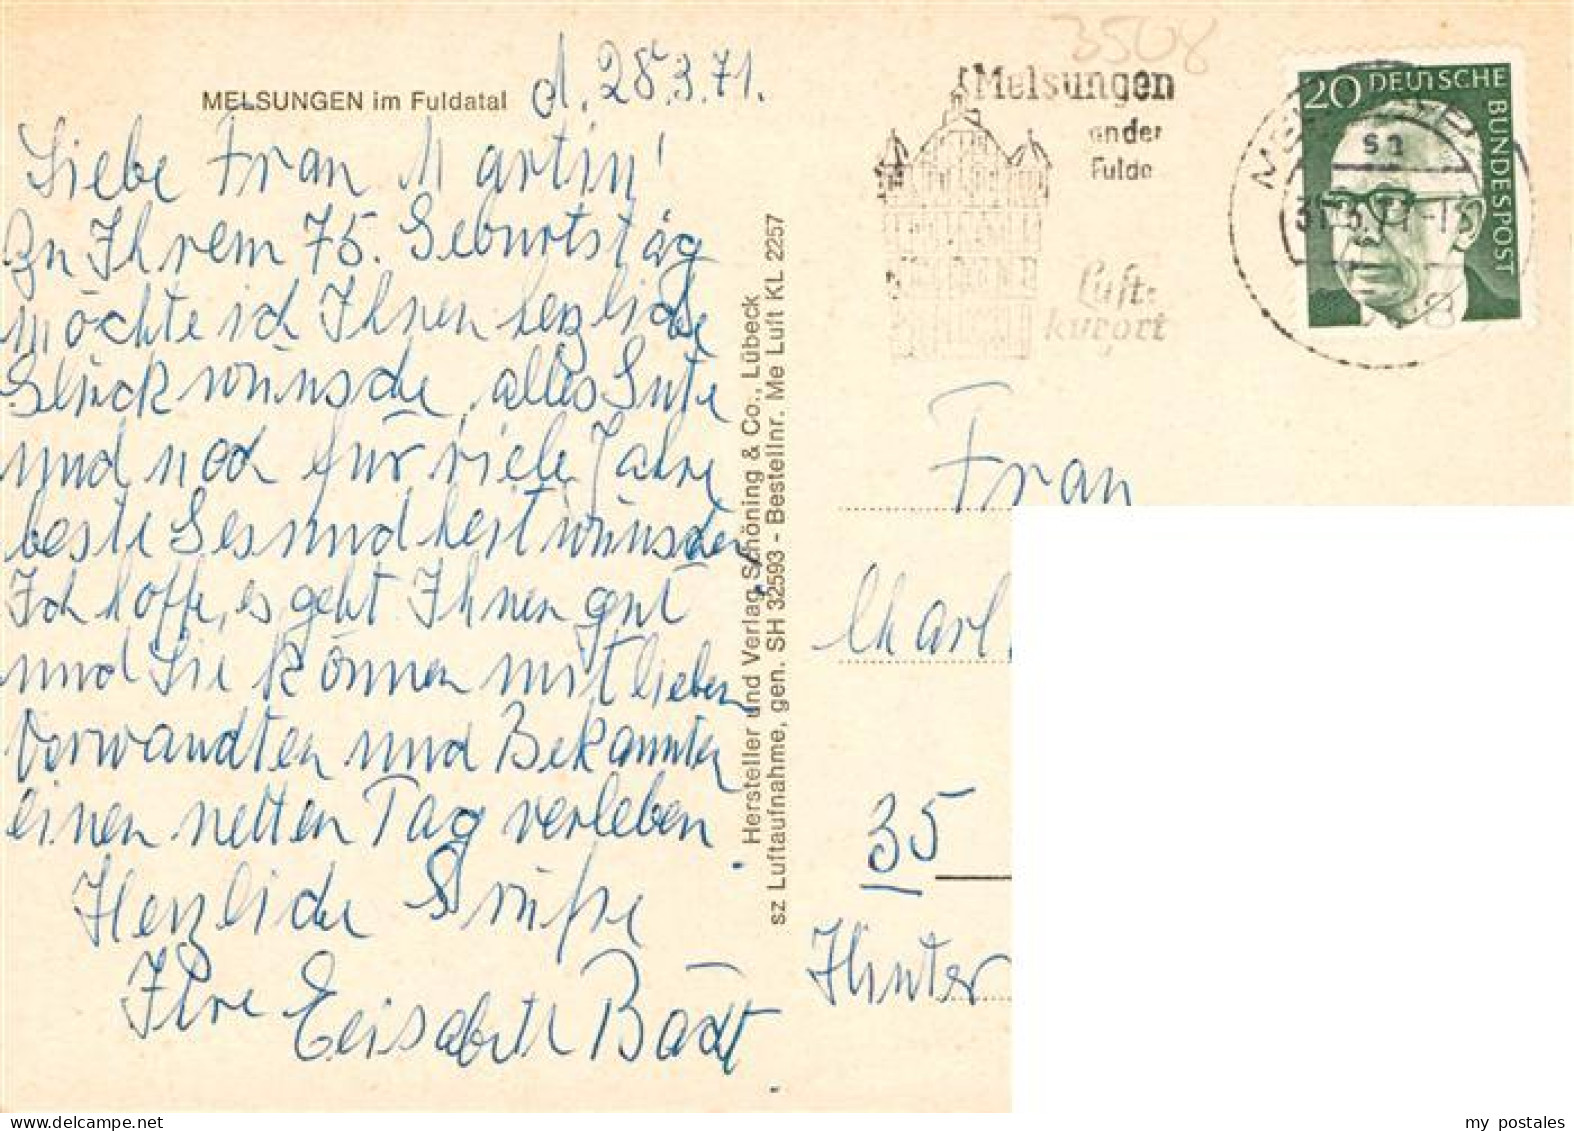 MELSUNGEN im Fuldatal
d. 28.3.71.
Liebe Frau Martin!
Zu Ihrem 75. Geburtstag
möchte ich Ihnen herzliche
Glückwünsche, alles Gute
und noch für viele Jahre
beste Gesundheit wünschen.
Ich hoffe, es geht Ihnen gut
und Sie können mit lieben
Verwandten und Bekannten
einen netten Tag verleben.
Herzliche Grüße
Ihre Elisabeth Badt
Hersteller und Verlag Schöning & Co., Lübeck
sz Luftaufnahme, gen. SH 32593 - Bestellnr. Me Luft KL 2257
3508
Melsungen
an der
Fulda
Luft-
kurort
20 DEUTSCHE
BUNDESPOST
sa
Frau
35
Hinter
my postales